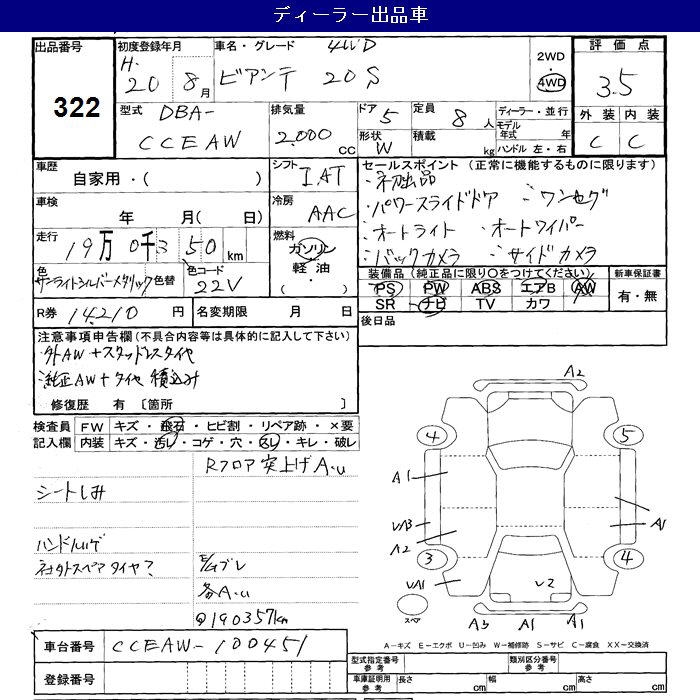 ディーラー出品車
出品番号 322
初度登録年月 H. 20 8月
車名・グレード 4WD
ビアンテ 20S
2WD
4WD
評価点 3.5
外装 C 内装 C
型式 DBA-
CCEAW
排気量 2,000 cc
ドア 5
形状 W
定員 8人
積載 kg
ディーラー・並行
モデル年式 年
ハンドル 左・右
車歴
自家用・( )
シフト IAT
車検
年 月( 日)
冷房 AAC
走行
19万0千350km
燃料
ガソリン
軽油
・( )
色
サンライトシルバーメタリック 色替
色コード 22V
R券 14,210 円
名変期限 月 日
セールスポイント(正常に機能するものに限ります)
・初出品
・パワースライドドア ・ワンセグ
・オートライト ・オートワイパー
・バックカメラ ・サイドカメラ
装備品(純正品に限り○をつけてください)
PS PW ABS エアB AW
SR ナビ TV カワ
新車保証書
有・無
後日品
注意事項申告欄(不具合内容等は具体的に記入して下さい)
・外AW+スタッドレスタイヤ
・純正AW+タイヤ 積込み
修復歴 有 [箇所 ]
検査員記入欄
FW キズ・飛石・ヒビ割・リペア跡・×要
内装 キズ・汚レ・コゲ・穴・スレ・キレ・破レ
Rフロア突上げA・u
シートしみ
ハンドル
スペアタイヤ?
E/Gブレ
各A・u
@190357km
A2
4
5
A1
UA3
A2
A1
3
4
UA1
U2
スペア
A3 A1 A1
A-キズ E-エクボ U-凹み W-補修跡 S-サビ C-腐食 XX-交換済
車台番号 CCEAW-100451
登録番号
型式指定番号 参考
類別区分番号 参考
車庫証明用 参考
長さ cm
幅 cm
高さ cm